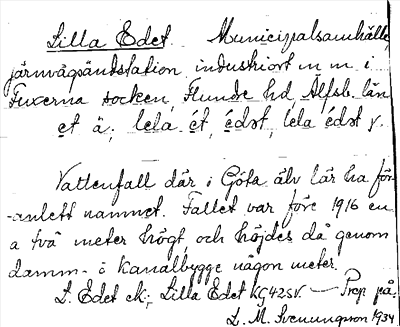 Lilla Edet. Municipalsamhälle,
järnvägsändstation industriort m m i
Fuxerna socken, Flundre hd, Älfsb. län
et ä; lela ét, édst, lela édst y.
Vattenfall där i Göta älv lär ha för-
-anlett namnet. Fallet var före 1916 en
a två meter högt och höjdes då genom
damm- o kanalbygge någon meter.
L. Edet ek; Lilla Edet KG42SV. — Prep på.
L. M. Svenungsson 1934